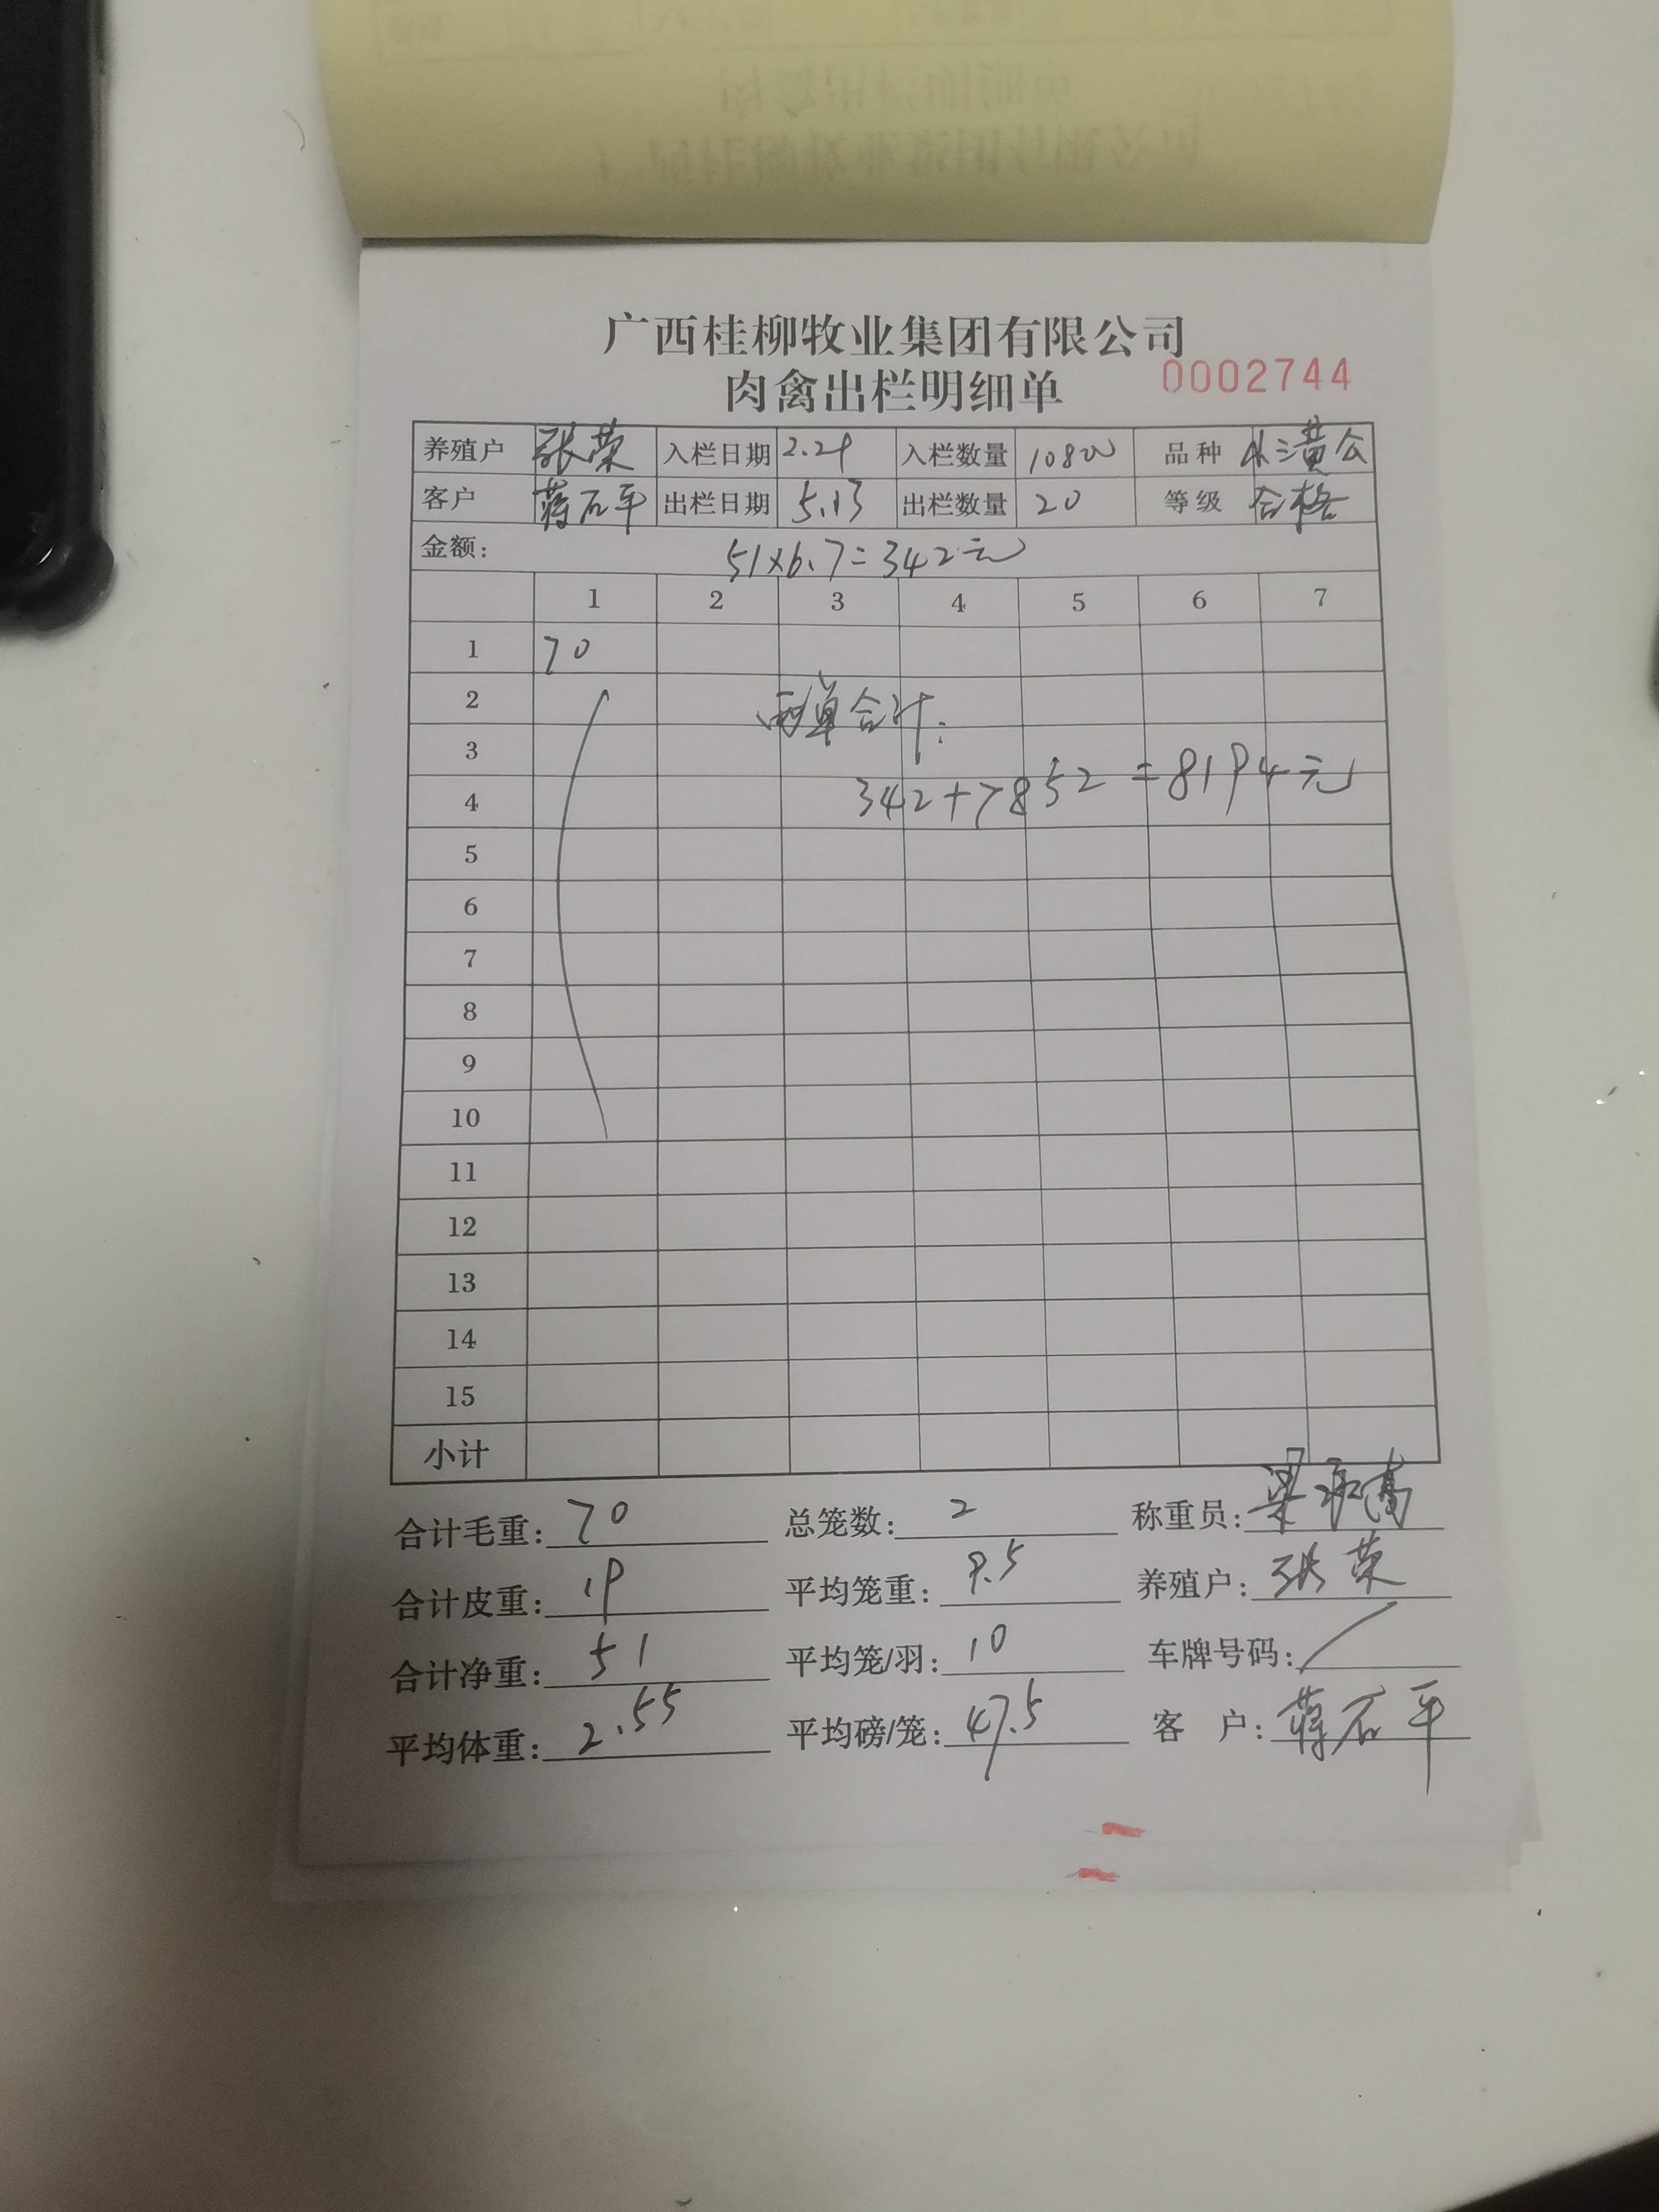 广西桂柳牧业集团有限公司
肉禽出栏明细单 0002744
养殖户 张荣 入栏日期 2.29 入栏数量 10800 品种 黄公
客户 蒋石平 出栏日期 5.13 出栏数量 20 等级 合格
金额: 51×6.7=342元
1 2 3 4 5 6 7
1 70
2 两单合计:
3
4 342+7852=8194元
5
6
7
8
9
10
11
12
13
14
15
小计
合计毛重: 70 总笼数: 2 称重员: 梁
合计皮重: 19 平均笼重: 9.5 养殖户: 张荣
合计净重: 51 平均笼/羽: 10 车牌号码: /
平均体重: 2.55 平均磅/笼: 47.5 客 户: 蒋石平